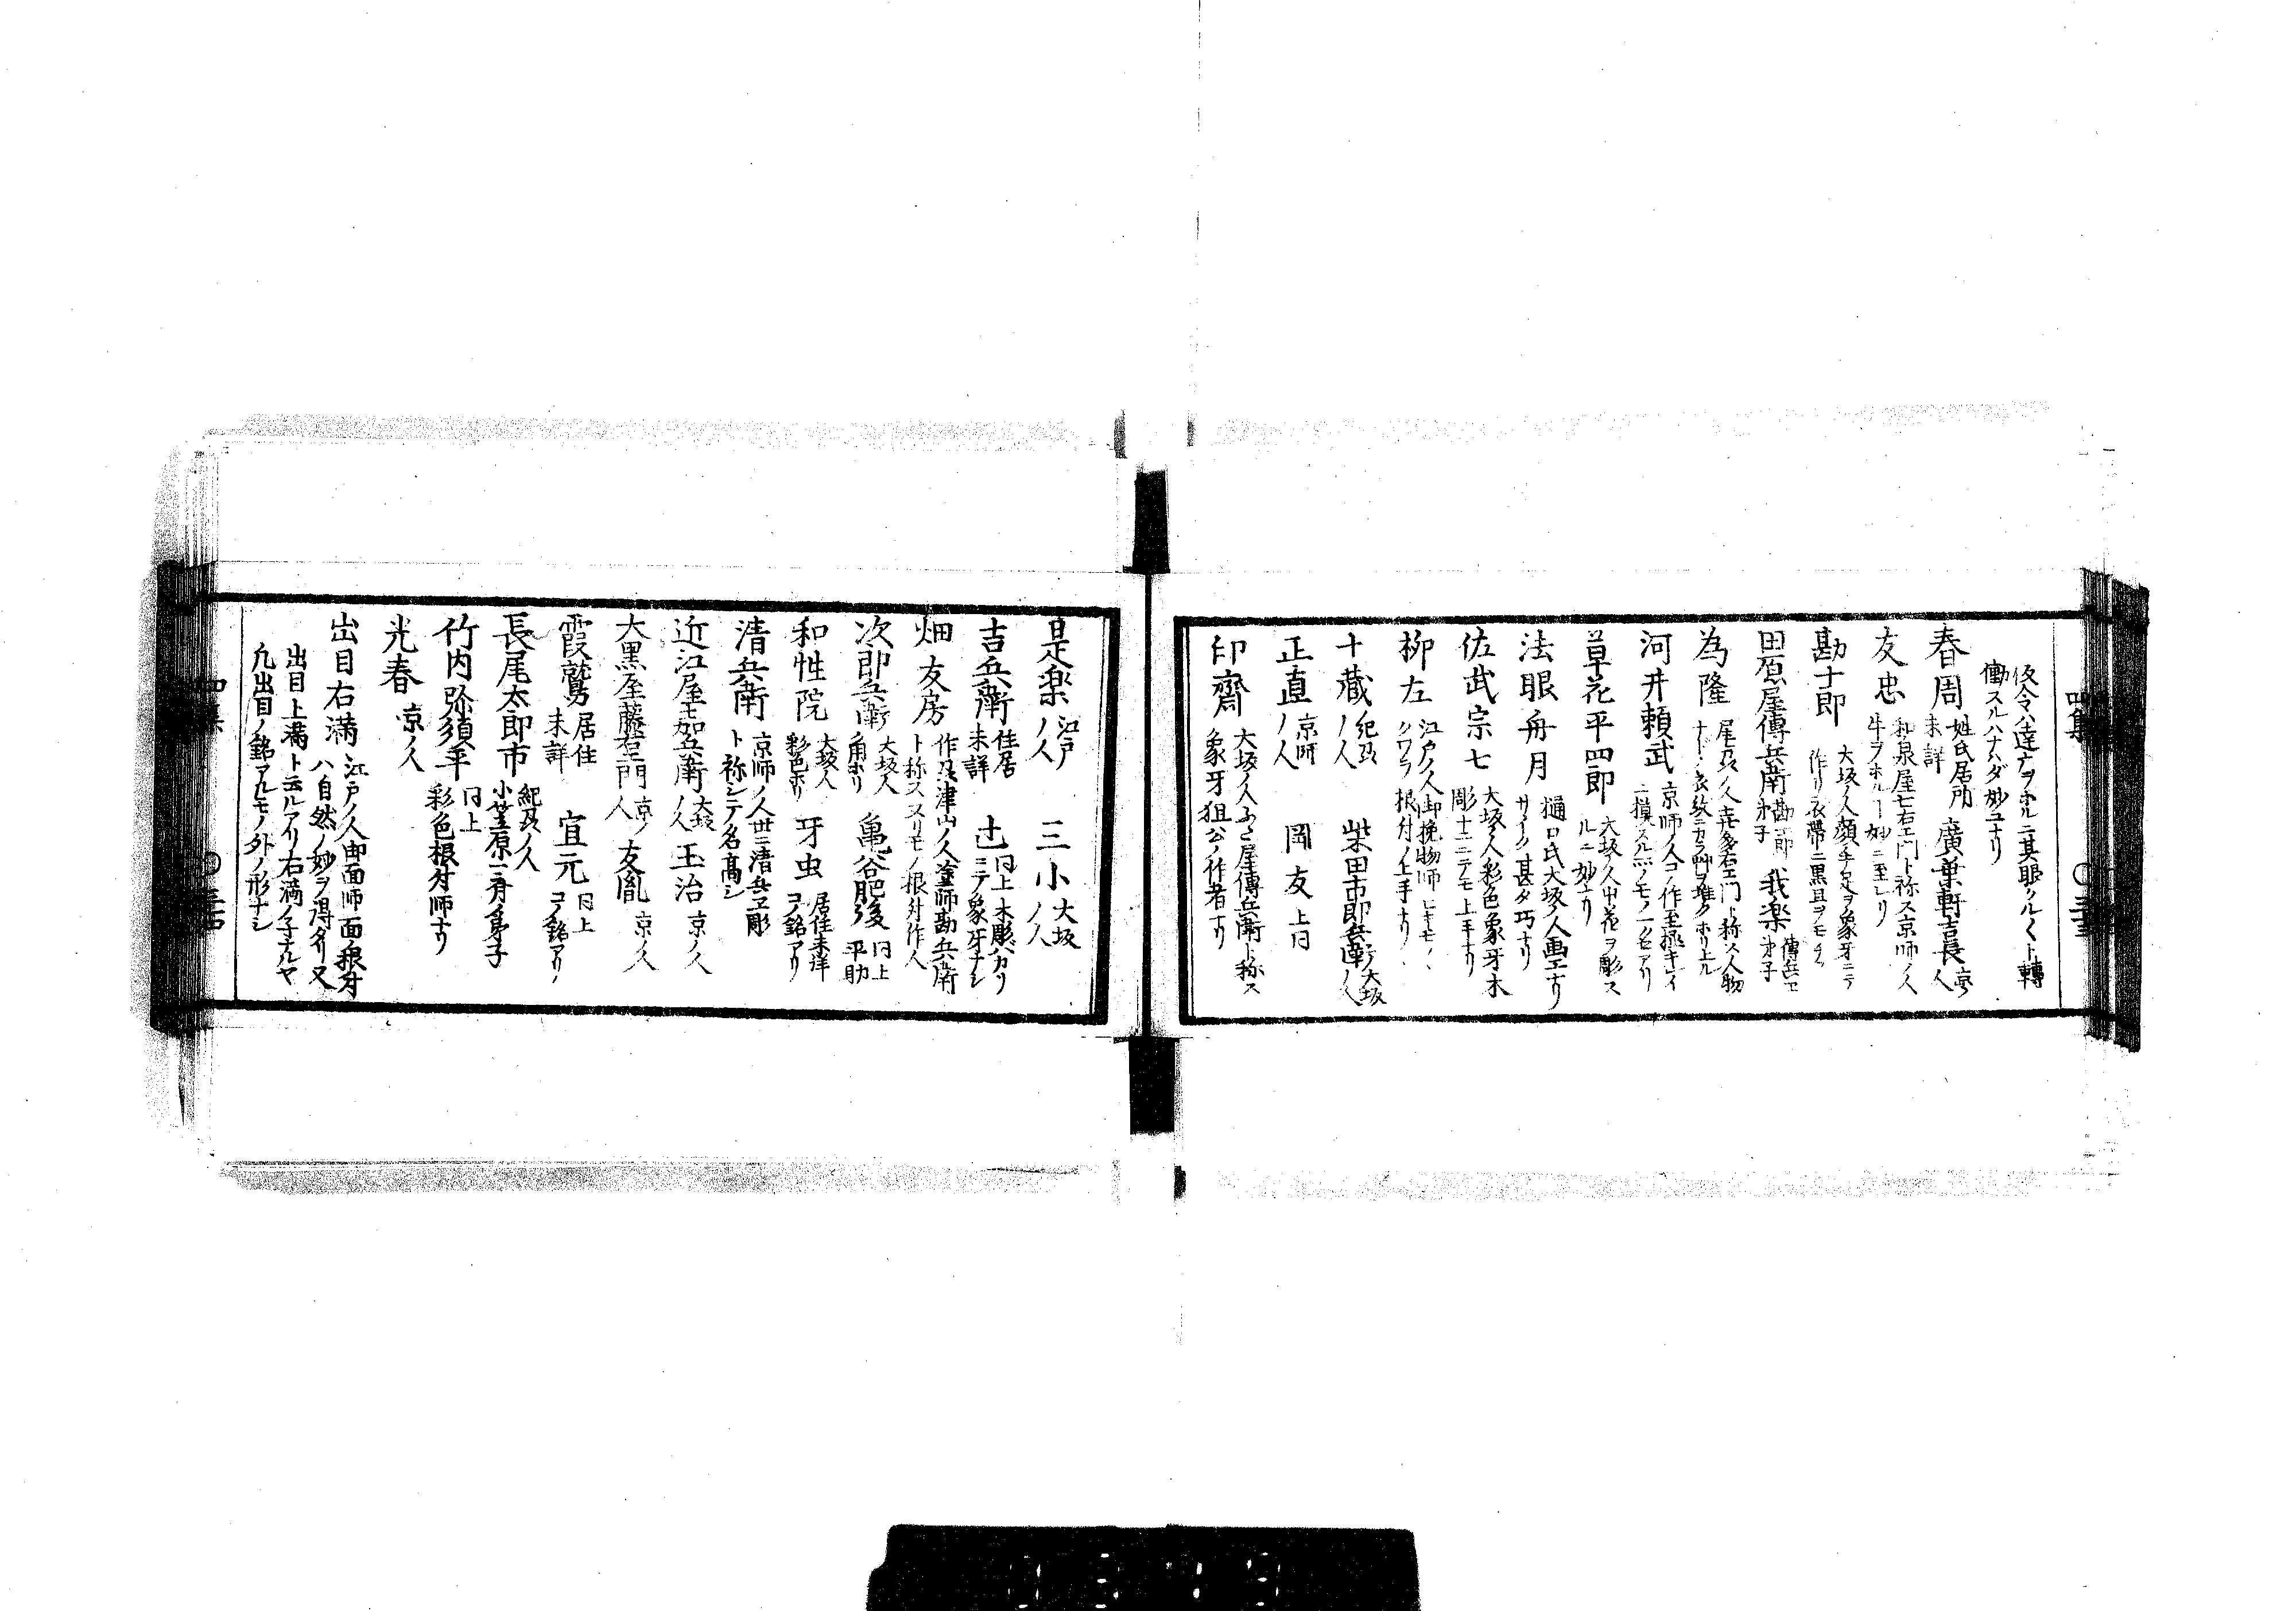 仮令ハ達广ヲホルニ其眼クル〱ト轉
働スルハナハダ妙ユナリ
春周 姓氏居所未詳 廣葉軒吉長 京人
友忠 和泉屋七右エ門ト称ス京師ノ人
牛ヲホルー妙ニ至レリ
勘十郎 大坂ノ人顔手足ヲ象牙ニテ
作リ衣帶ニ黒且ヲモチ
田原屋傳兵衛 勘十郎弟子 我楽 傳兵エ弟子
為隆 尾刕ノ人 右エ門ト称ス人物
河井頼武 京師ノ人コノ作至極キレイ
草花平四郎 大坂ノ人中花ヲ彫ス
ルニ妙ナリ
法眼舟月 樋口氏大坂ノ人画エナリ
サイク甚タ巧ナリ
佐武宗七 大坂ノ人彩色象牙木
彫十ニニテモ上手ナリ
柳左 江戸ノ人御挽物師ヒキモノ
根付ノ上手ナリ
十蔵 紀刕ノ人 柴田市郎兵衛 大坂ノ人
正直 京師ノ人 岡友 上日
印齋 大坂ノ人ふさ屋傳兵衛ト称ス
象牙狙公ノ作者ナリ
是楽 江戸ノ人 三小 大坂ノ人
吉兵衛 住居未詳 辻 日上木彫バカリ
ニテ象牙ナシ
畑友房 作刕津山ノ人釜師勘兵衛
ト称ススリモノ根付作人
次郎兵衛 大坂人角ホリ 亀谷肥後 日上平助
和性院 大坂人彩色ホリ 牙虫 居住未詳コノ銘アリ
清兵衛 京師ノ人世ニ清兵エ彫
ト称シテ名高シ
近江屋加兵衛 大坂ノ人 玉治 京ノ人
大黒屋藤右エ門 京ノ人 友胤 京ノ人
霞鷲 居住未詳 宜元 日上コノ銘アリ
長尾太郎市 紀刕ノ人
小笠原一斉弟子
竹内弥須平 日上
彩色根付師ナリ
光春 京ノ人
出目右満 江戸ノ人御面師面根付
ハ自然ノ妙ヲ得タリ又
出目上満ト云ルアリ右満ノ子ナルヤ
凢出目ノ銘アルモノ外ノ形ナシ